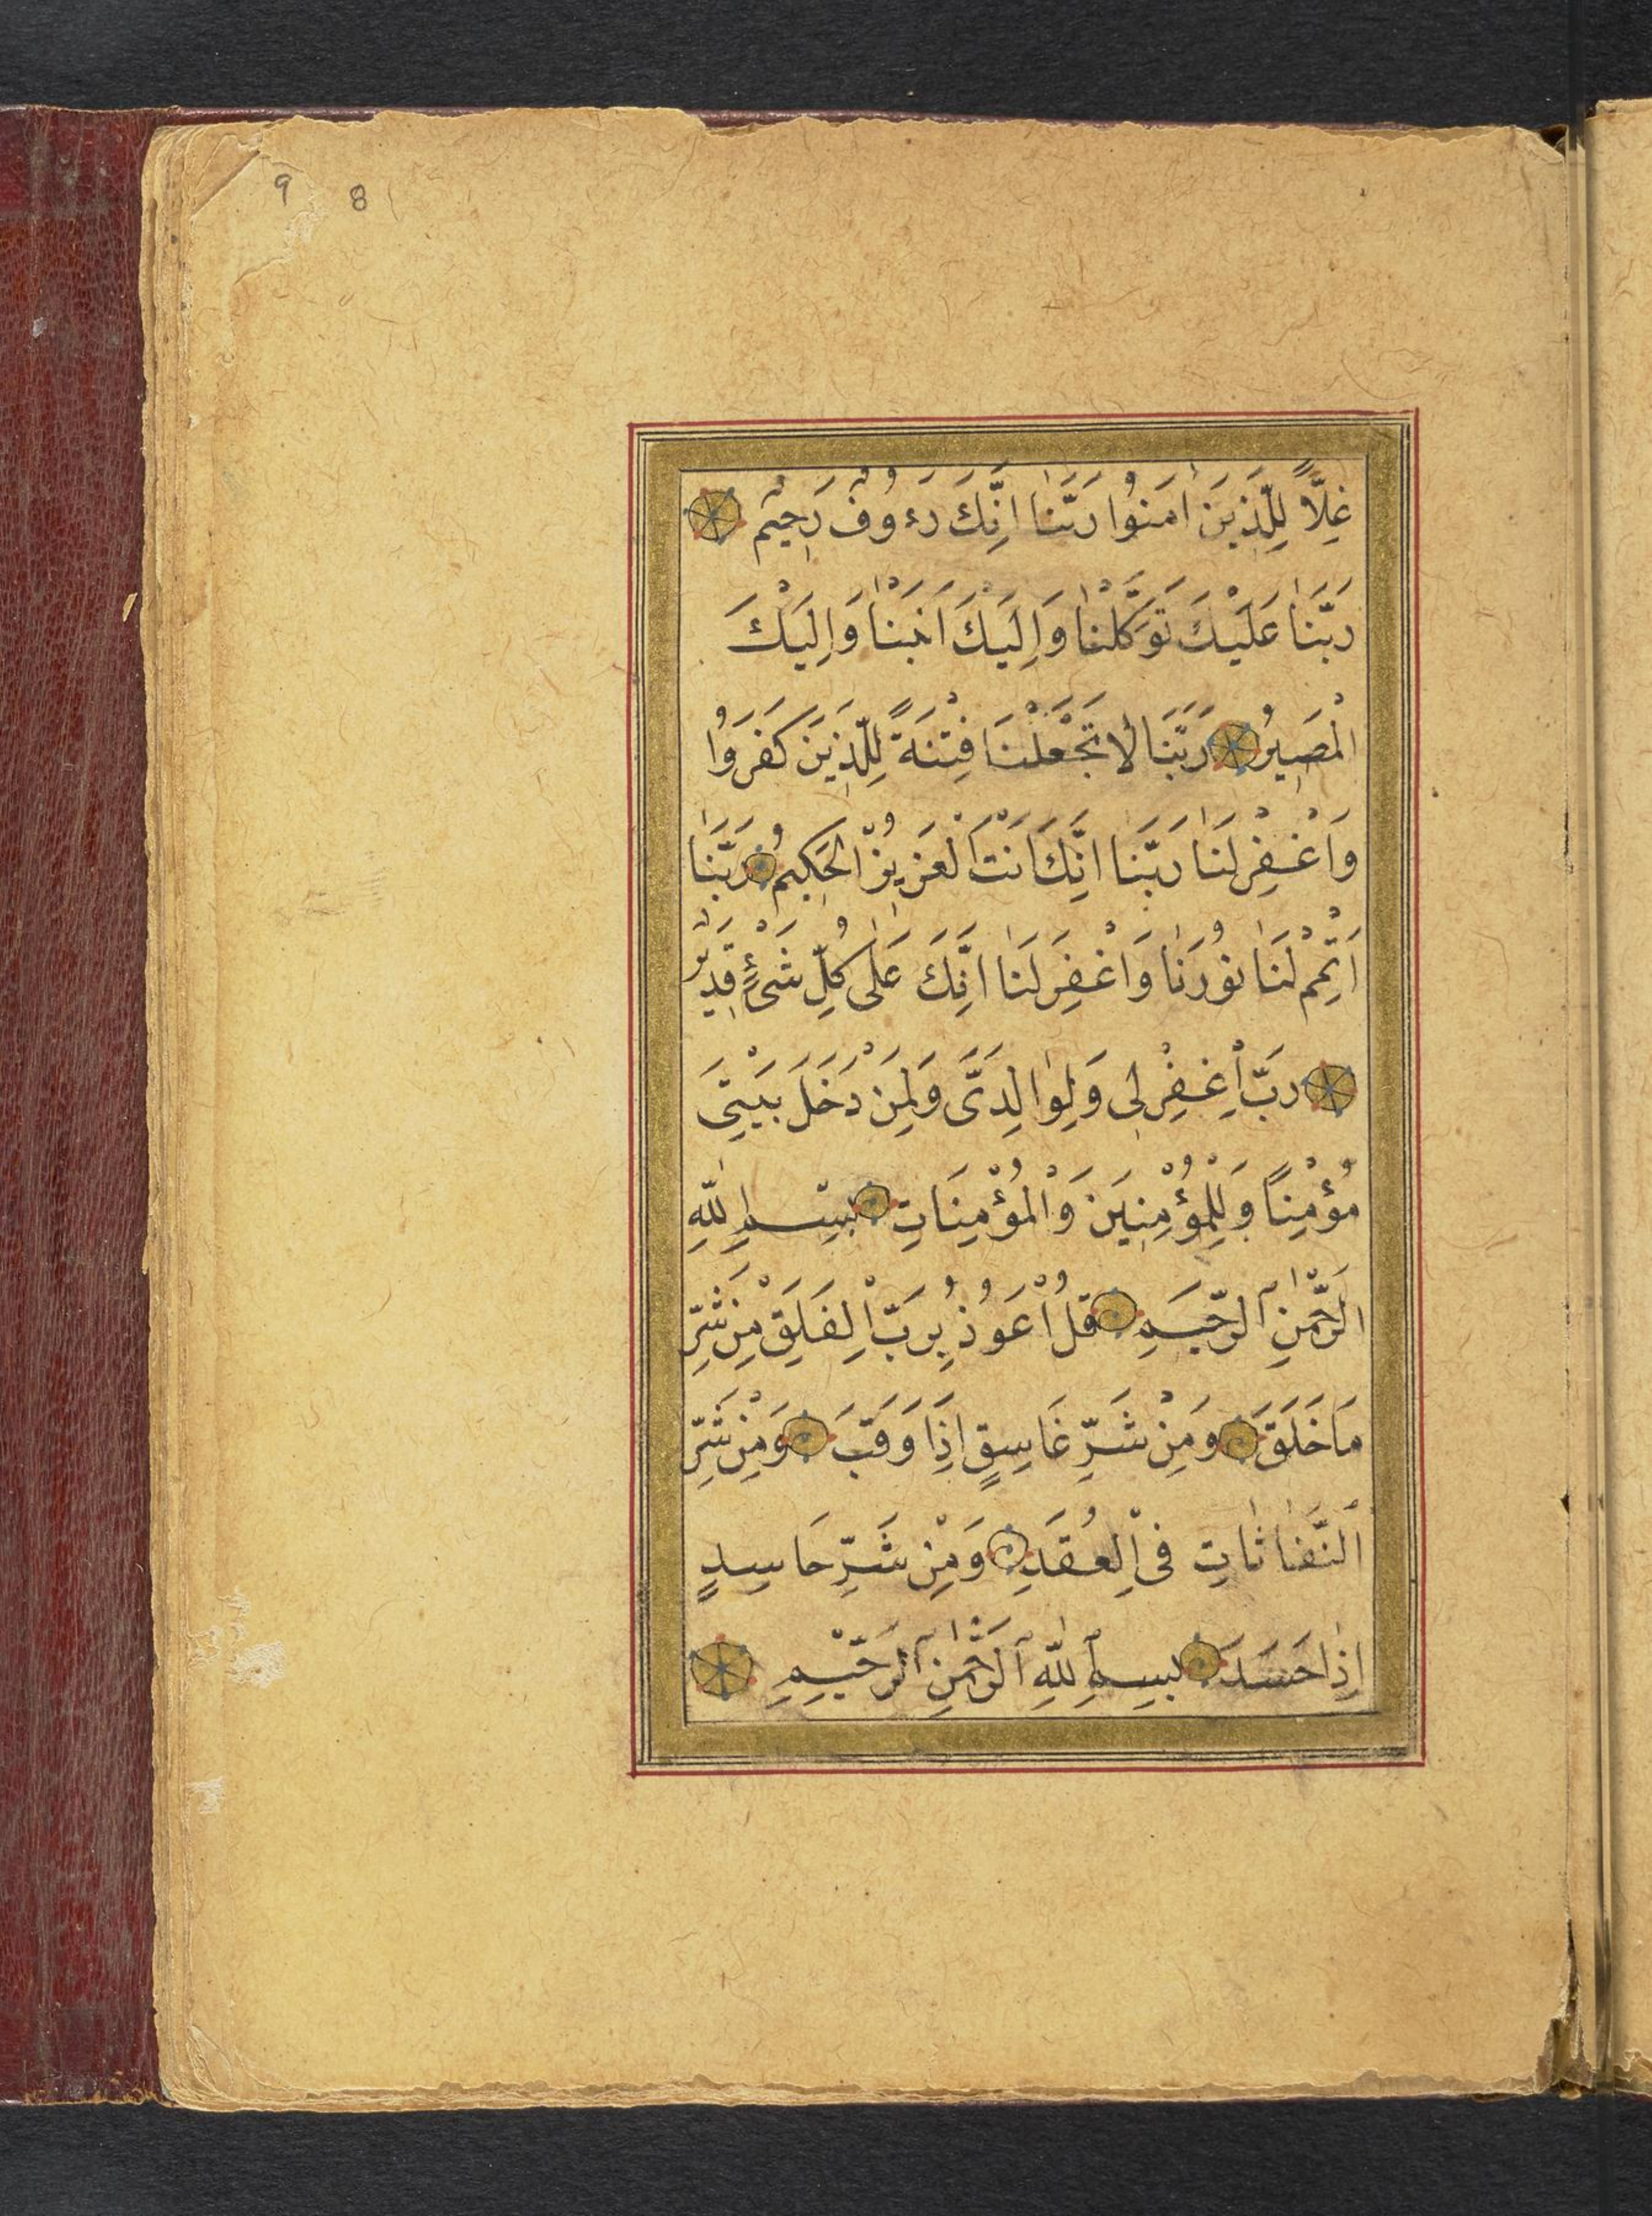 9 8
غِلًّا لِلَّذِينَ اٰمَنُوا رَبَّنَا اِنَّكَ رَءُوفٌ رَحِيمٌ
رَبَّنَا عَلَيْكَ تَوَكَّلْنَا وَاِلَيْكَ اَنَبْنَا وَاِلَيْكَ
الْمَصِيرُ رَبَّنَا لَا تَجْعَلْنَا فِتْنَةً لِلَّذِينَ كَفَرُوا
وَاغْفِرْ لَنَا رَبَّنَا اِنَّكَ اَنْتَ الْعَزِيزُ الْحَكِيمُ رَبَّنَا
اَتْمِمْ لَنَا نُورَنَا وَاغْفِرْ لَنَا اِنَّكَ عَلٰى كُلِّ شَىْءٍ قَدِيرٌ
رَبِّ اغْفِرْ لِى وَلِوَالِدَىَّ وَلِمَنْ دَخَلَ بَيْتِىَ
مُؤْمِنًا وَلِلْمُؤْمِنِينَ وَالْمُؤْمِنَاتِ بِسْمِ اللّٰهِ
الرَّحْمٰنِ الرَّحِيمِ قُلْ اَعُوذُ بِرَبِّ الْفَلَقِ مِنْ شَرِّ
مَا خَلَقَ وَمِنْ شَرِّ غَاسِقٍ اِذَا وَقَبَ وَمِنْ شَرِّ
النَّفَّاثَاتِ فِى الْعُقَدِ وَمِنْ شَرِّ حَاسِدٍ
اِذَا حَسَدَ بِسْمِ اللّٰهِ الرَّحْمٰنِ الرَّحِيمِ